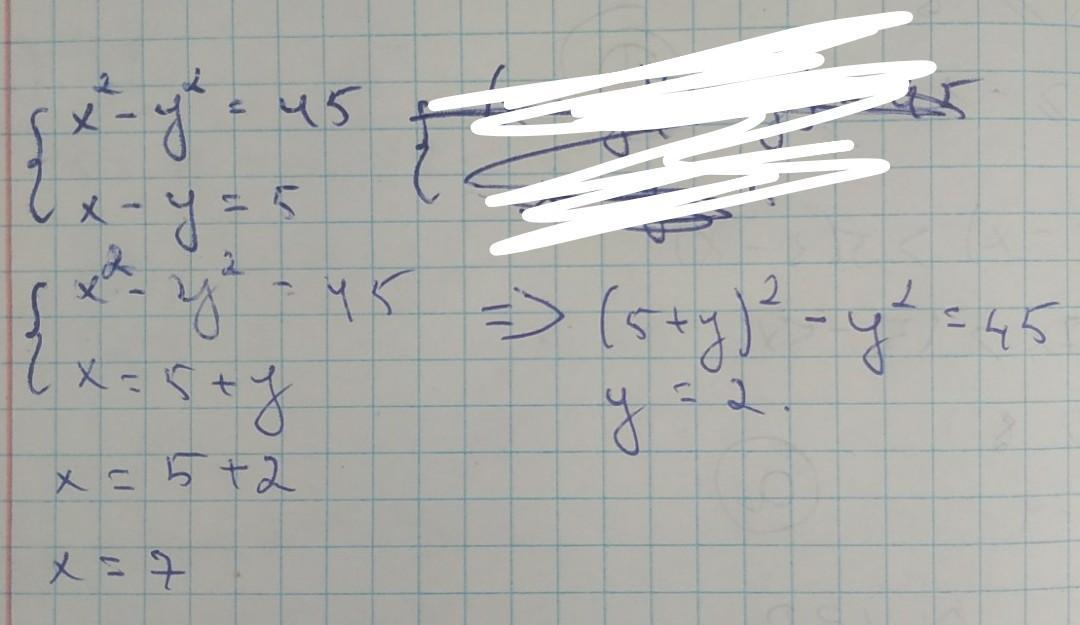 x² - y² = 45
x - y = 5
x² - y² = 45 => (5+y)² - y² = 45
x = 5 + y
y = 2.
x = 5 + 2
x = 7